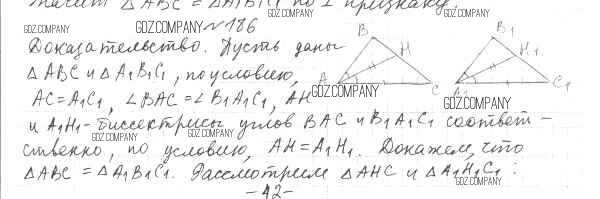 Значит △ABC = △A₁B₁C₁ по 1 признаку.
GDZ.COMPANY GDZ.COMPANY GDZ.COMPANY
GDZ.COMPANY
№186
Доказательство. Пусть даны
△ABC и △A₁B₁C₁, по условию,
AC=A₁C₁, ∠BAC=∠B₁A₁C₁, AH
и A₁H₁-биссектрисы углов BAC и B₁A₁C₁ соответ-
ственно, по условию, AH=A₁H₁. Докажем, что
△ABC=△A₁B₁C₁. Рассмотрим △AHC и △A₁H₁C₁:
-42-
B
H
A
C
B₁
H₁
A₁
C₁
GDZ.COMPANY
GDZ.COMPANY
GDZ.COMPANY
GDZ.COMPANY
GDZ.COMPANY
GDZ.COMPANY
GDZ.COMPANY